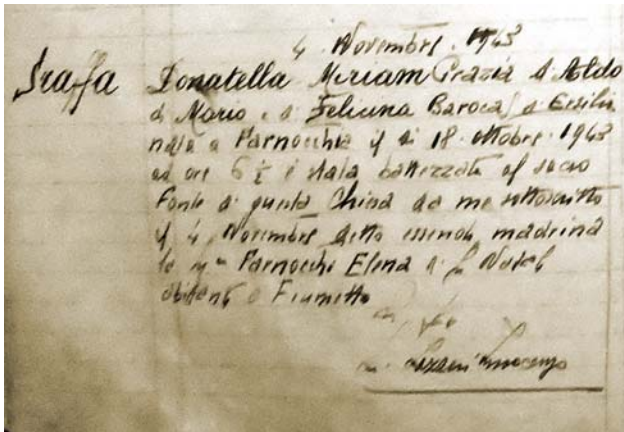 4 Novembre 1943
Sraffa Donatella Miriam Grazia di Aldo
di Mario e di Feliciana Barocas di Ersilio
nata a Parnocchia il dì 18 ottobre 1943
ad ore 6 ½ è stata battezzata al sacro
Fonte di questa Chiesa da me sottoscritto
il 4 Novembre detto essendo madrina
la Parnocchi Elena di
abitante a Fiumetto